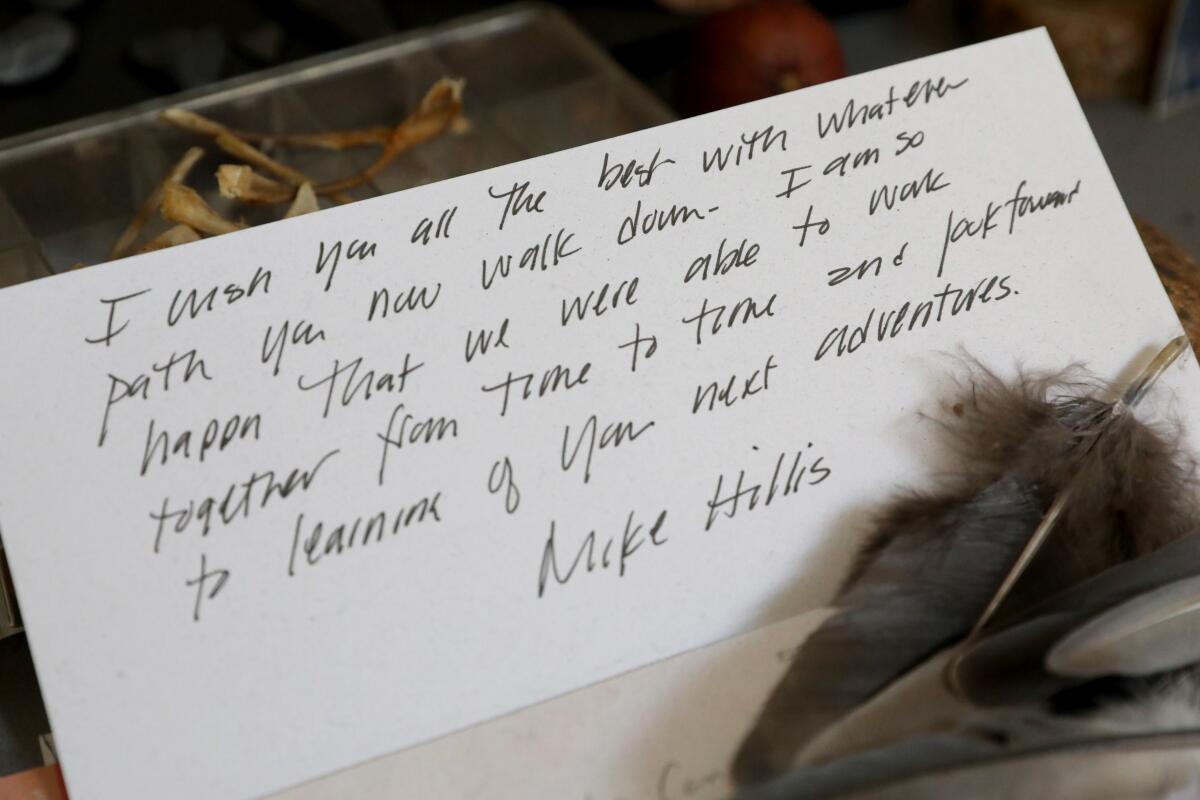 I wish you all the best with whatever
path you now walk down - I am so
happy that we were able to work
together from time to time and look forward
to learning of your next adventures.
Mike Hillis